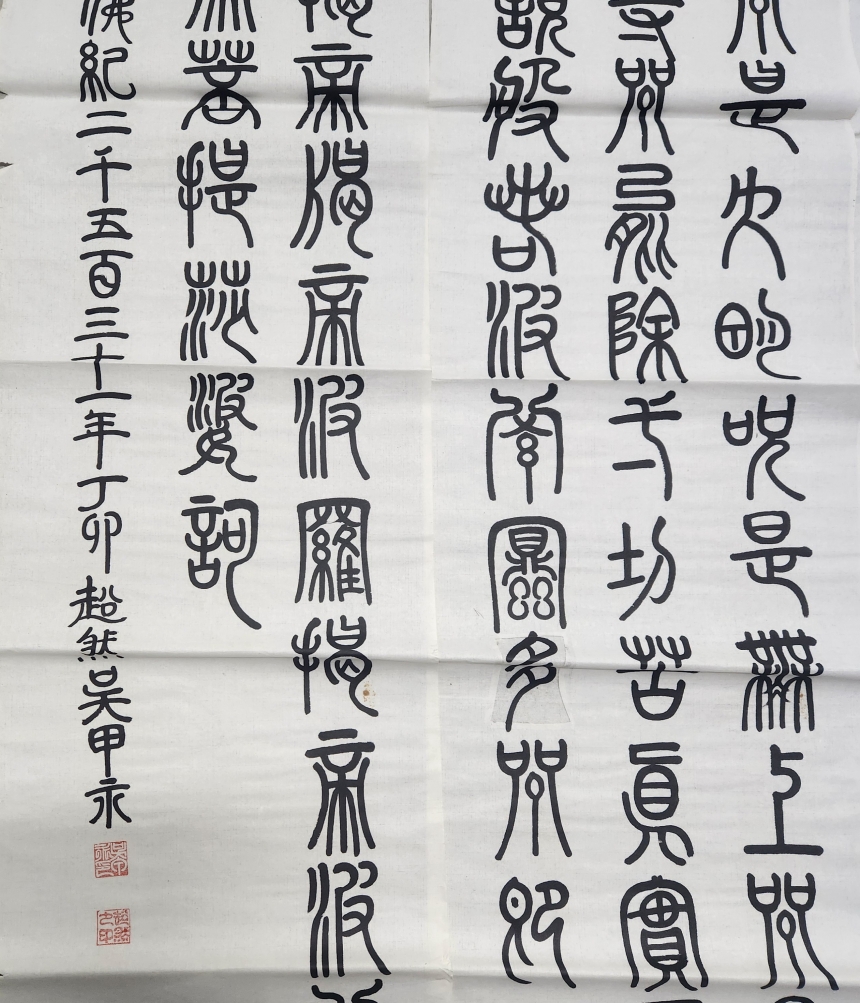 咒是大明呪是無上咒
等咒能除一切苦眞實
說般若波羅蜜多咒即
揭帝揭帝波羅揭帝波
菩提莎婆訶
佛紀二千五百三十一年丁卯 超然吳甲永